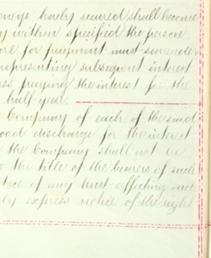 moneys hereby secured shall become
within specified the person
for payment must surrender
representing subsequent interest
paying the interest for the
half year.
Company of each of the said
good discharge for the interest
the Company shall not be
the title of the bearers of such
of any trust affecting
express notice of the right